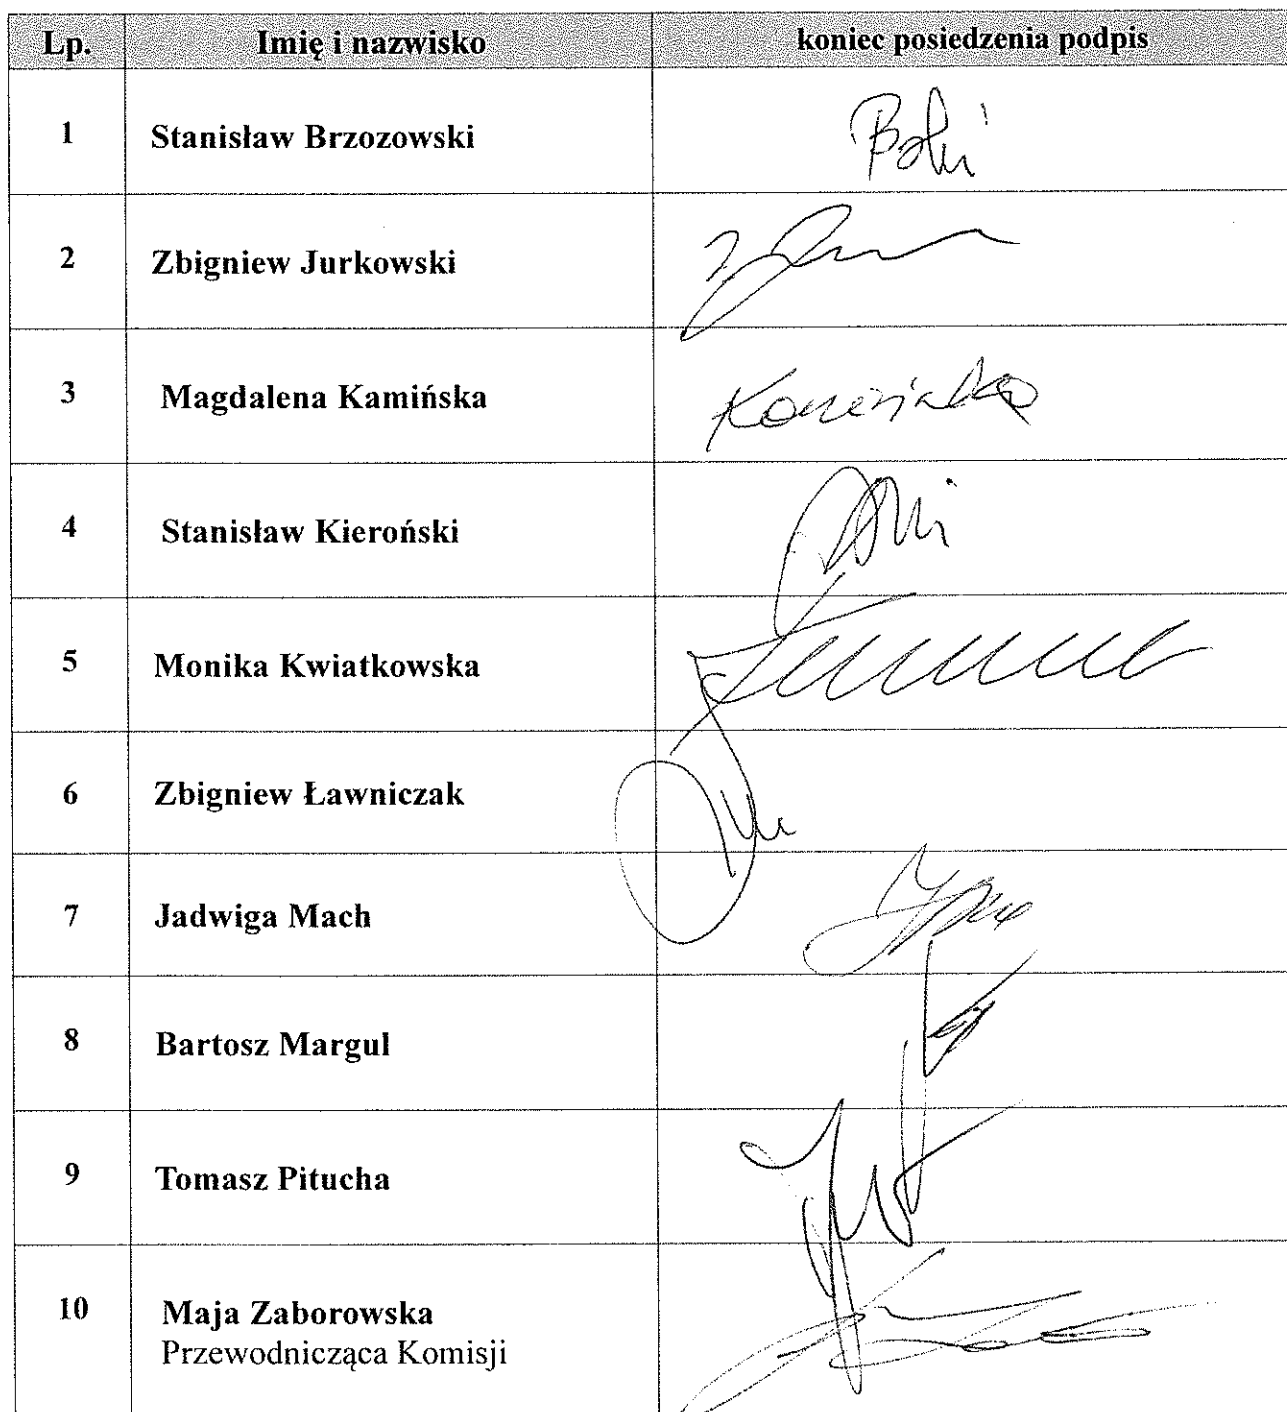 Lp. Imię i nazwisko koniec posiedzenia podpis
1 Stanisław Brzozowski
2 Zbigniew Jurkowski
3 Magdalena Kamińska
4 Stanisław Kieroński
5 Monika Kwiatkowska
6 Zbigniew Ławniczak
7 Jadwiga Mach
8 Bartosz Margul
9 Tomasz Pitucha
10 Maja Zaborowska
Przewodnicząca Komisji